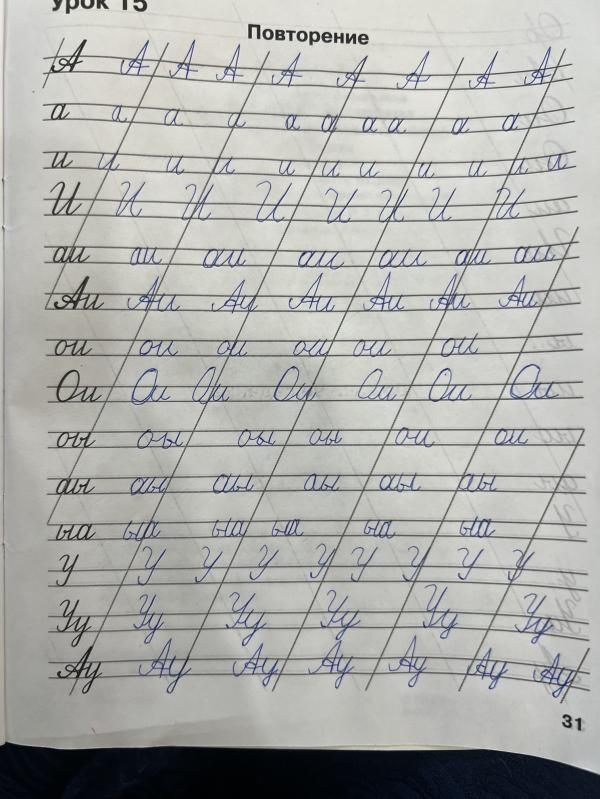 Урок 15
Повторение
А А А А А А А А А
а а а а а а а а а а
и и и и и и и и и и и
И И И И И И И И
аи аи аи аи аи аи аи
Аи Аи Ау Аи Аи Аи Аи
ои ои ои ои ои ои
Ои Ои Ои Ои Ои Ои Ои
оы оы оы оы ои ои
аы аы аы аы аы аы
ыа ыа ыа ыа ыа ыа
У У У У У У У У У
Уу Уу Уу Уу Уу Уу
Ау Ау Ау Ау Ау Ау Ау
31